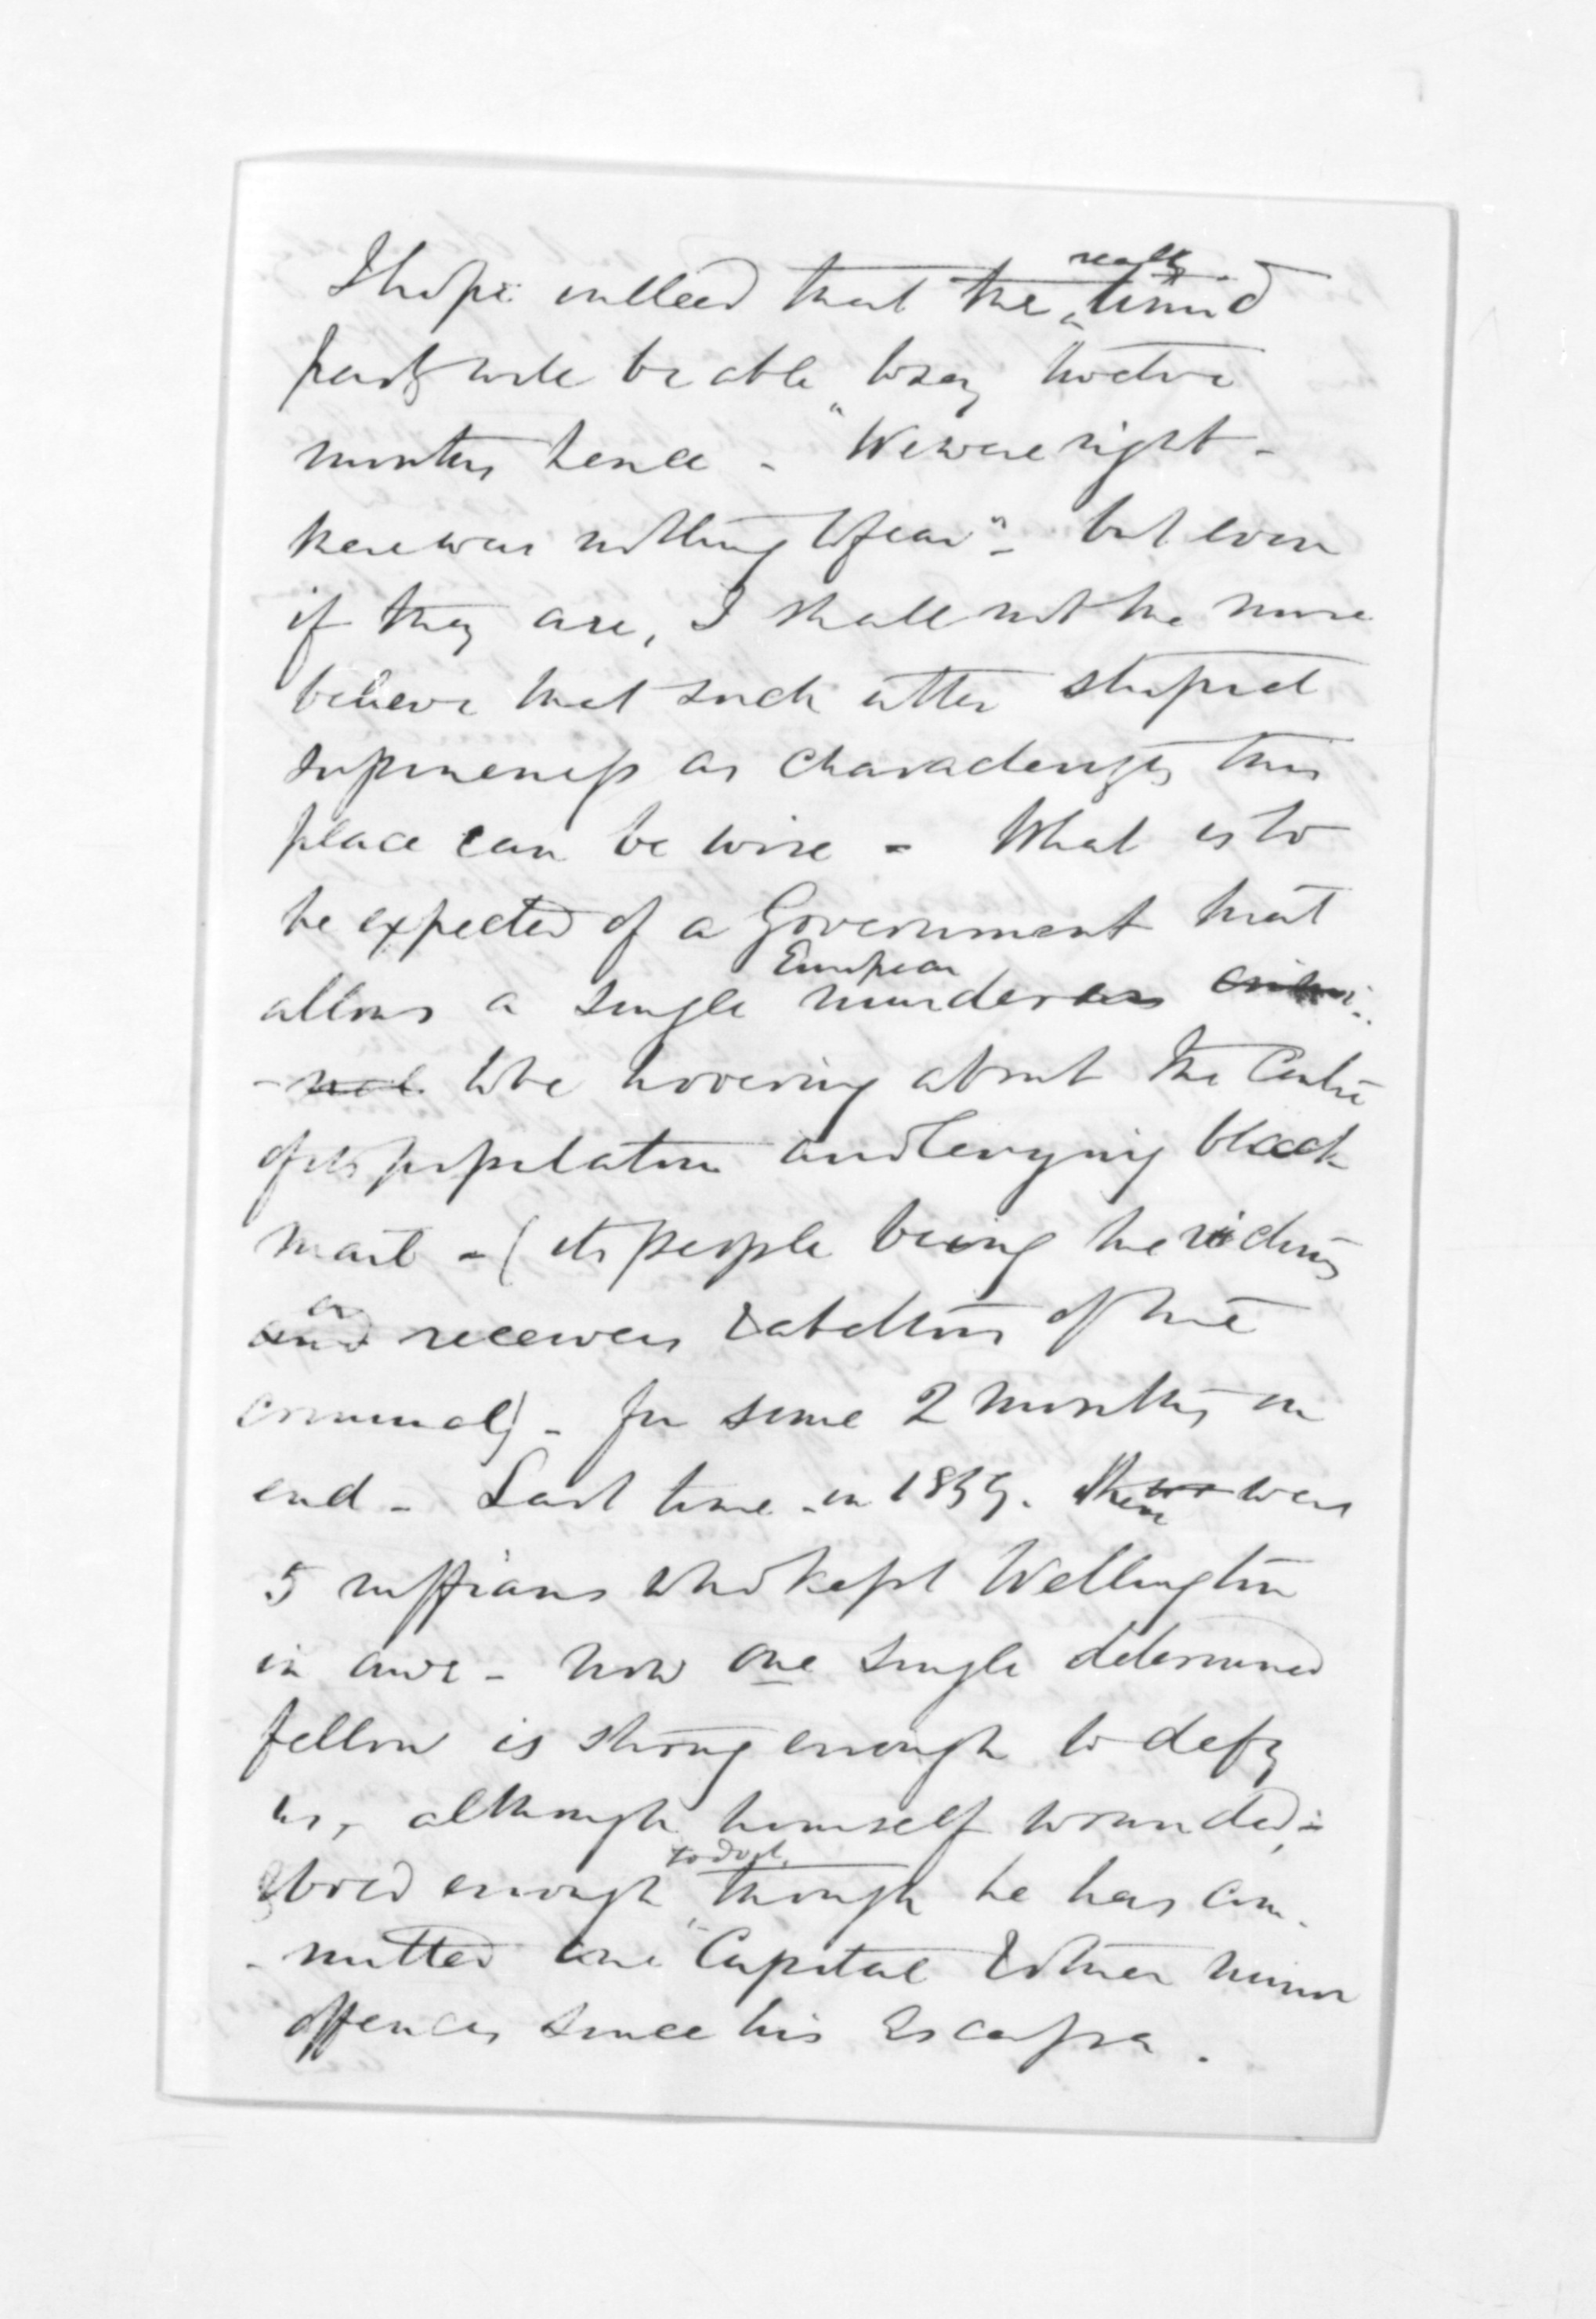 I hope indeed that the really timid
party will be able to say twelve
months hence - "We were right -
there was nothing to fear" - but even
if they are, I shall not the more
believe that such utter stupid
supineness as characterizes this
place can be wise - What is to
be expected of a Government that
allows a single European murderer crimi-
-nal to be hovering about the Centre
of its population and levying black
mail - (its people being the victims
and or receivers & abettors of the
criminal) - for some 2 months on
end - Last time - in 1859. there were
5 ruffians who kept Wellington
in awe - now one single determined
fellow is strong enough to defy
us, although himself wounded;
& bold enough to do it, though he has com-
-mitted one Capital & other minor
offences since his Escape.